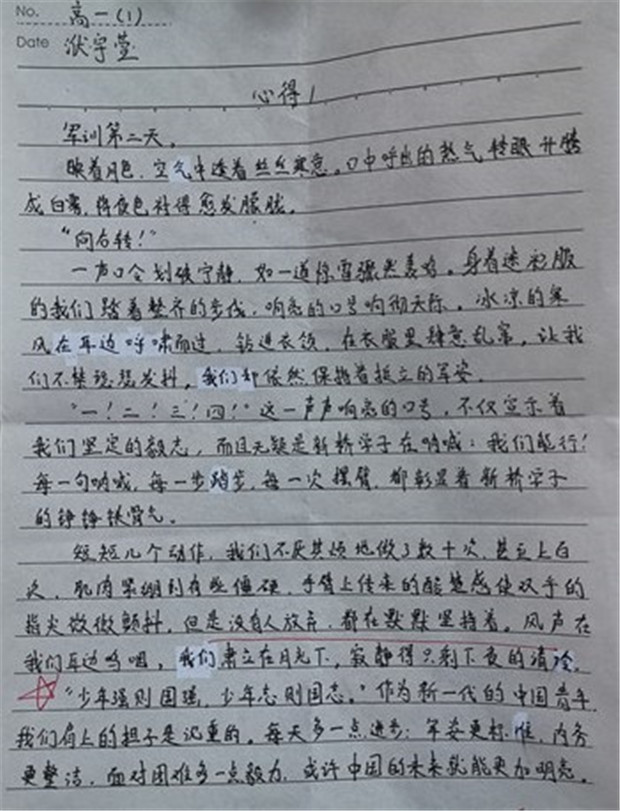 No. 高一(1)
Date 洑宇萱
心得1
军训第二天。
映着月色,空气中透着丝丝寒意。口中呼出的热气转眼升腾
成白雾,将夜色衬得愈发朦胧。
“向右转!”
一声口令划破宁静,如一道惊雷骤然轰鸣。身着迷彩服
的我们踏着整齐的步伐,响亮的口号响彻天际。冰凉的寒
风在耳边呼啸而过,钻进衣领,在衣服里肆意乱窜。让我
们不禁瑟瑟发抖。我们却依然保持着挺立的军姿。
“一!二!三!四!”这一声声响亮的口号,不仅宣示着
我们坚定的毅志,而且无疑是新桥学子在呐喊:我们能行!
每一句呐喊,每一步踏步,每一次摆臂,都彰显着新桥学子
的铮铮铁骨气。
短短几个动作,我们不厌其烦地做了数十次,甚至上百
次,肌肉紧绷到有些僵硬,手臂上传来的酸楚感使双手的
指尖微微颤抖,但是没有人放弃,都在默默坚持着。风声在
我们耳边呜咽,我们肃立在月光下,寂静得只剩下夜的清冷。
“少年强则国强,少年志则国志。”作为新一代的中国青年,
我们肩上的担子是沉重的。每天多一点进步:军姿更标准,内务
更整洁,面对困难多一点毅力,或许中国的未来就能更加明亮。